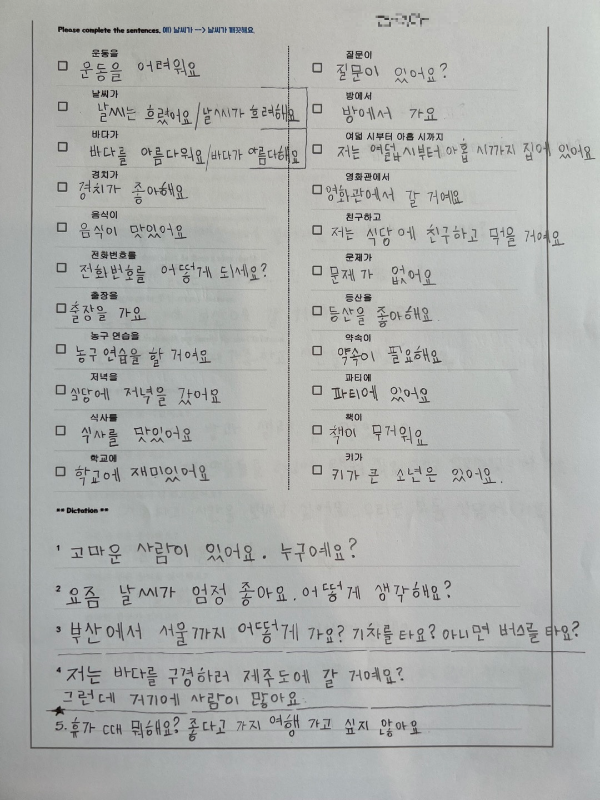 Please complete the sentences. 예) 날씨가 --> 날씨가 깨끗해요.
운동을
운동을 어려워요
날씨가
날씨는 흐렸어요/날씨가 흐려해요
바다가
바다를 아름다워요/바다가 아름다해요
경치가
경치가 좋아해요
음식이
음식이 맛있어요
전화번호를
전화번호를 어떻게 되세요?
출장을
출장을 가요
농구 연습을
농구 연습을 할 거여요
저녁을
식당에 저녁을 갔어요
식사를
식사를 맛있어요
학교에
학교에 재미있어요
질문이
질문이 있어요?
방에서
방에서 가요
여덟 시부터 아홉 시까지
저는 여덟 시부터 아홉 시까지 집에 있어요
영화관에서
영화관에서 갈 거예요
친구하고
저는 식당에 친구하고 먹을 거예요
문제가
문제가 없어요
등산을
등산을 좋아해요
약속이
약속이 필요해요
파티에
파티에 있어요
책이
책이 무거워요
키가
키가 큰 소년은 있어요.
** Dictation **
1 고마운 사람이 있어요. 누구예요?
2 요즘 날씨가 엄정 좋아요. 어떻게 생각해요?
3 부산에서 서울까지 어떻게 가요? 기차를 타요? 아니면 버스를 타요?
4 저는 바다를 구경하러 제주도에 갈 거예요?
그런데 거기에 사람이 많아요
5. 휴가 때 뭐해요? 좋다고 가지 여행 가고 싶지 않아요